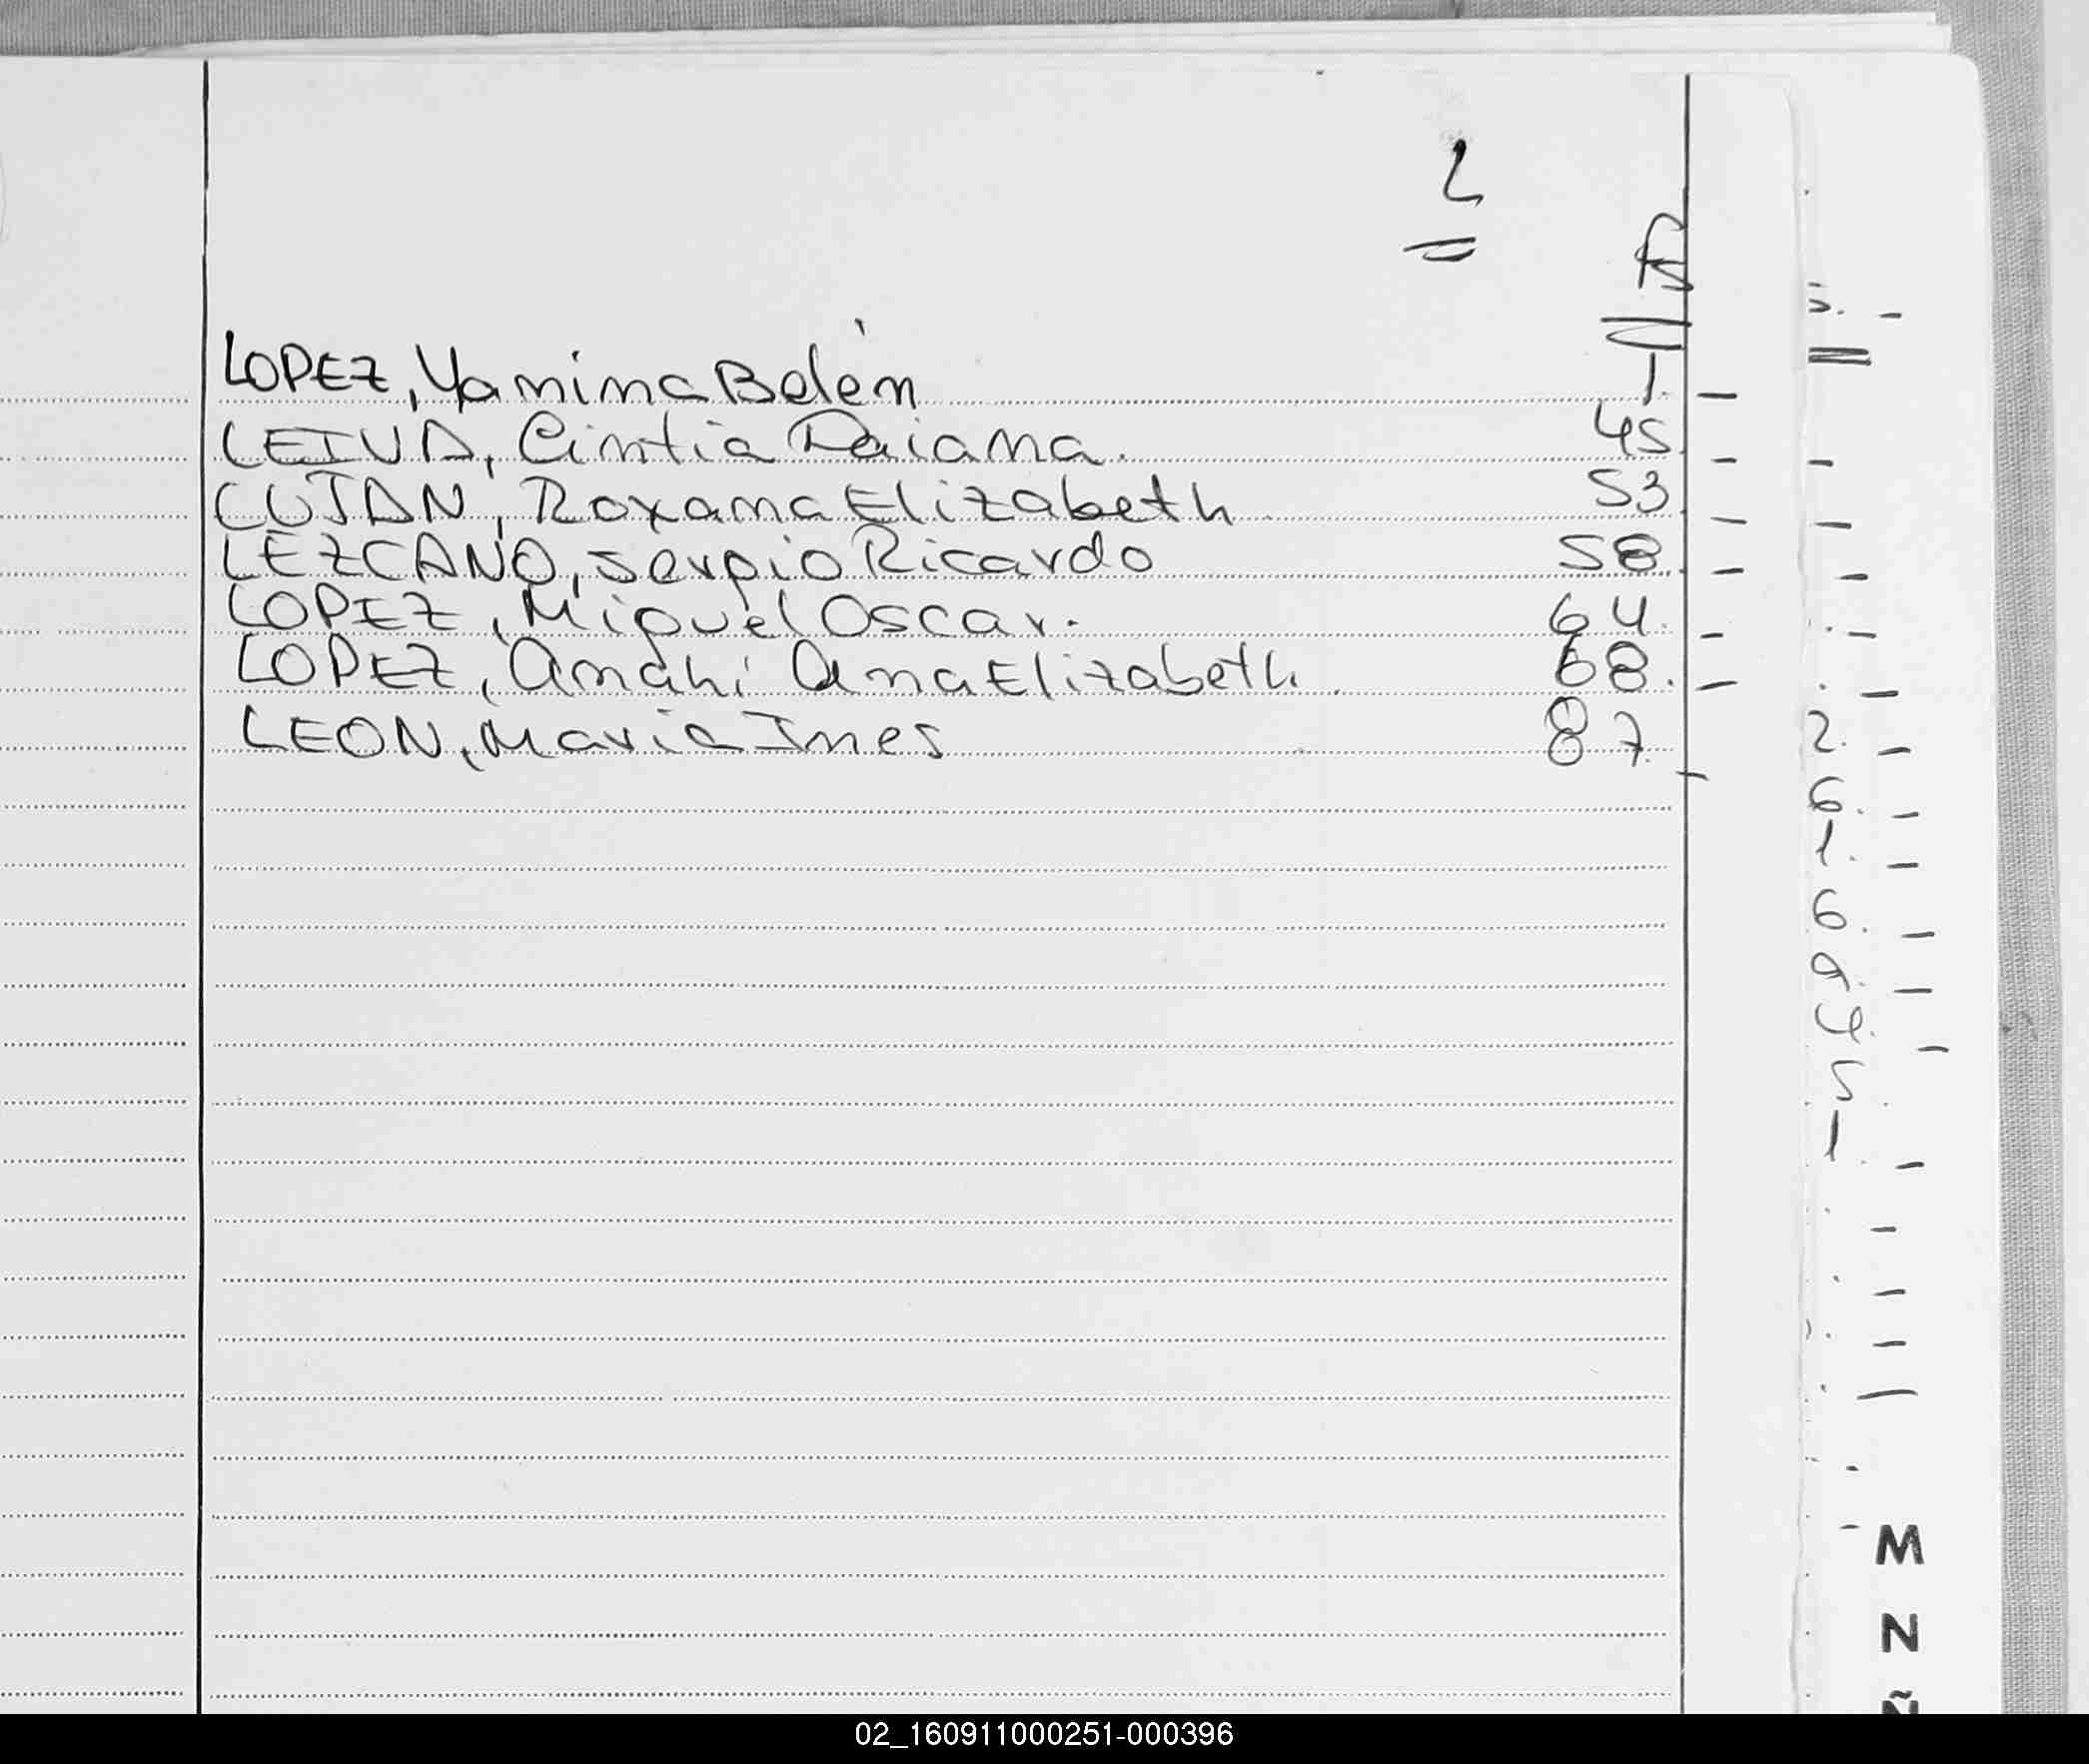 L
Fs
LOPEZ, Yamina Belén 1. -
LEIVA, Cintia Daiana. 45. -
LUJAN, Roxana Elizabeth 53. -
LEZCANO, Sergio Ricardo 58. -
LOPEZ, Miguel Oscar. 64. -
LOPEZ, Anahi Ana Elizabeth. 68. -
LEON, Maria Ines 87. -
2. -
6. -
1. -
6. -
9. -
1. -
M
N
Ñ
02_160911000251-000396